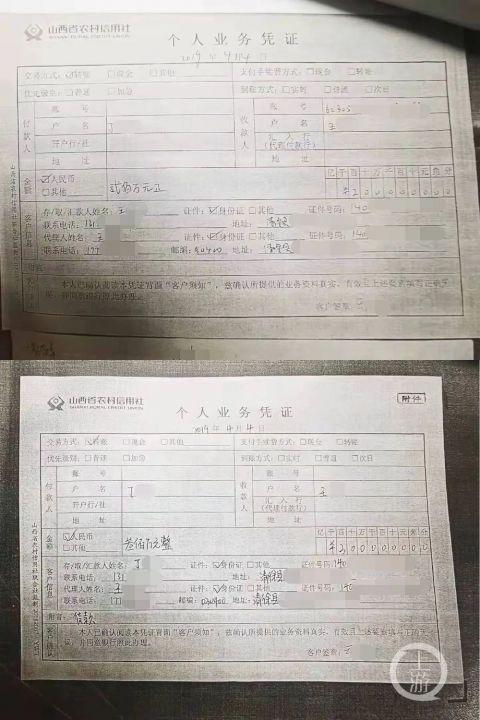 山西省农村信用社
个人业务凭证
2019年4月4日
交易方式: 转账 现金 其他 支付手续费方式: 现金 转账
优先级别: 普通 加急 到账方式: 实时 普通 次日
付款人 账号 收款人 账号 62305
户名 丁 户名 王
开户行/社 汇入行(代理付款行)
地址 地址
金额 人民币 亿千百十万千百十元角分
其他 贰佰万元正 ¥200000000
客户信息
存/取/汇款人姓名: 王 证件: 身份证 其他 证件号码: 140
联系电话: 131 地址:
代理人姓名: 王 证件: 身份证 其他 证件号码: 140
联系电话: 177 邮编: 地址:
本人已确认阅读本凭证背面“客户须知”,兹确认所提供的业务资料真实、有效且上述要素填写正确无
客户签章: 王
山西省农村信用社
SHANXI RURAL CREDIT UNION
附件
个人业务凭证
2019年4月4日
交易方式: 转账 现金 其他 支付手续费方式: 现金 转账
优先级别: 普通 加急 到账方式: 实时 普通 次日
付款人 账号 收款人 账号
户名 丁 户名 王
开户行/社 汇入行(代理付款行)
地址 地址
金额 人民币 亿千百十万千百十元角分
其他 叁佰万元整 ¥300000000
客户信息
存/取/汇款人姓名: 丁 证件: 身份证 其他 证件号码: 140
联系电话: 131 地址: 清徐县
代理人姓名: 王 证件: 身份证 其他 证件号码: 140
联系电话: 177 邮编: 030400 地址: 清徐县
附言: 货款
本人已确认阅读本凭证背面“客户须知”,兹确认所提供的业务资料真实、有效且上述要素填写正确无
证,并同意银行照此办理。
客户签章: 王
上游